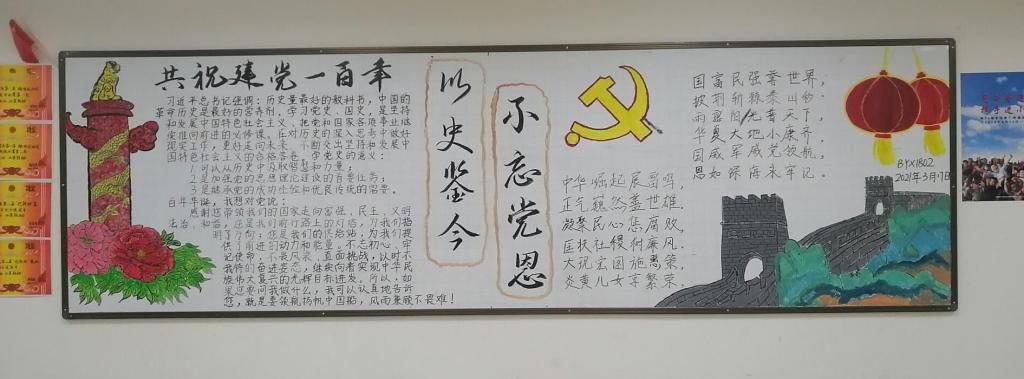 共祝建党一百年
习近平总书记强调：历史是最好的教科书，中国的
革命历史是最好的营养剂，学习党史、国史，是坚持
和发展中国特色社会主义、把党和国家各项事业继
续推向前进的必修课。在对历史的深入思考中做好
现实工作，更好走向未来，不断交出坚持和发展中
国特色社会主义的合格答卷。学党史的意义：
1.可以从历史中汲取智慧和力量；
2.是加强党的思想理论建设的首要任务；
3.是继承党的成功经验和优良传统的需要。
百年华诞，我想对党说：
感谢您带领我们的国家走向富强、民主、文明
法治、和谐，您是我们前行路上的灯塔，为我们指
明了方向；您是我们的
供了前进的动力和能量。不忘初心、牢
记使命，不畏风浪、直面挑战，以时不
我待的奋进姿态，继续向着实现中华民
族伟大复兴的光辉目标进发。所以，如
果您要问我做什么，我可以认真地告诉
您，就是要领航扬帆中国船，风雨兼顾不畏难！
以史鉴今
不忘党恩
中华崛起展雷鸣，
正气巍然盖世雄。
凝聚民心怎腐败，
匡扶社稷树廉风。
大祝宏图施惠策，
炎黄儿女享繁荣。
国富民强誉世界，
披荆斩棘泰山松。
雨露阳光普天下，
华夏大地小康齐。
国威军威党领航，
恩如深海永牢记。
BYX1802
2021年3月17日